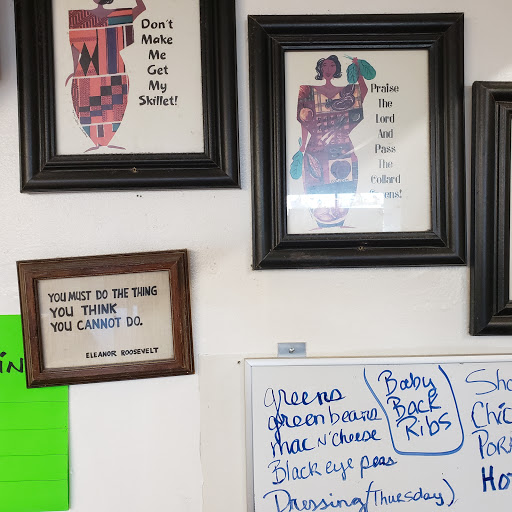 Don't
Make
Me
Get
My
Skillet!
Praise
The
Lord
And
Pass
The
Collard
YOU MUST DO THE THING
YOU THINK
YOU CANNOT DO.
ELEANOR ROOSEVELT
IN
greens
green beans
mac N' cheese
Black eye peas
Dressing (Thursday)
Baby
Back
Ribs